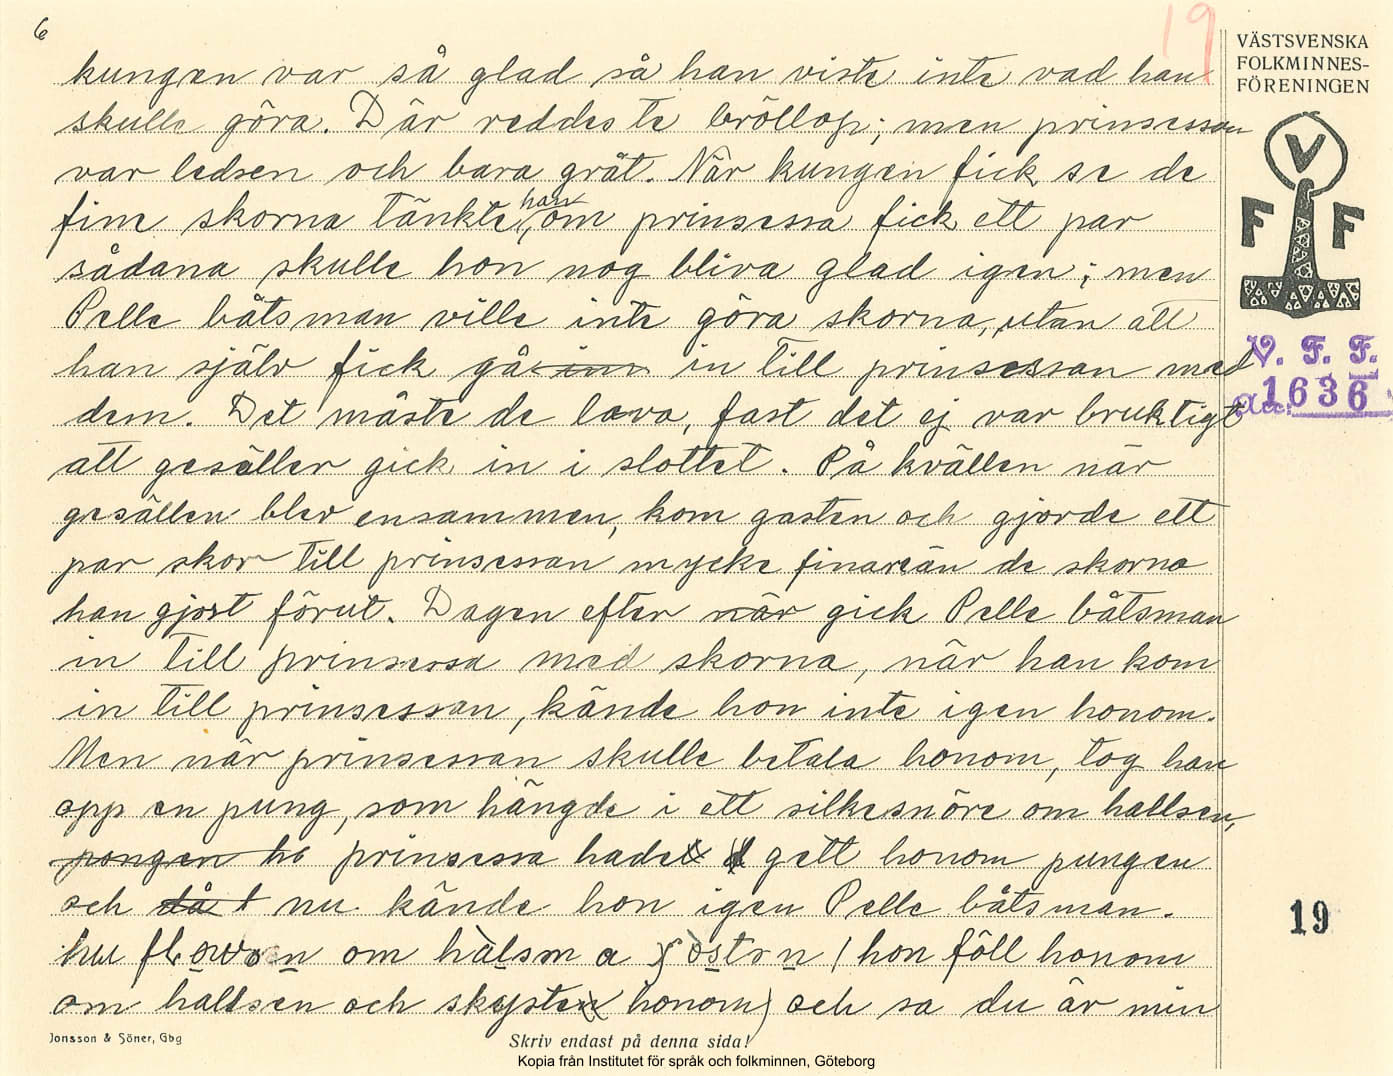 6
19
VÄSTSVENSKA
FOLKMINNES-
FÖRENINGEN
V
F F
V. F. F.
Acc. 1636
kungen var så glad så han viste inte vad han
skulle göra. Där reddes te bröllop; men prinsessan
var ledsen och bara gråt. När kungen fick se de
fine skorna tänkte han, om prinsessa fick ett par
sådana skulle hon nog bliva glad igen; men
Pelle båtsman ville inte göra skorna, utan att
han själv fick gå in till prinsessan med
dem. Det måste de lova, fast det ej var bruktigt
att gesäller gick in i slottet. På kvällen när
gesällen blev ensammen, kom gasten och gjorde ett
par skor till prinsessan mycke finare än de skorna
han gjort förut. Dagen efter när gick Pelle båtsman
in till prinsessa med skorna, när han kom
in till prinsessan, kände hon inte igen honom.
Men när prinsessan skulle betala honom, tog han
opp en pung, som hängde i ett silkesnöre om hallsen,
pongen ho prinsessa hade gett honom pungen
och då nu kände hon igen Pelle båtsman.
hu om halsm a / hon föll honom
om hallsen och skyste honom) och sa du är min
19
Jonsson & Söner, Gbg
Skriv endast på denna sida!
Kopia från Institutet för språk och folkminnen, Göteborg